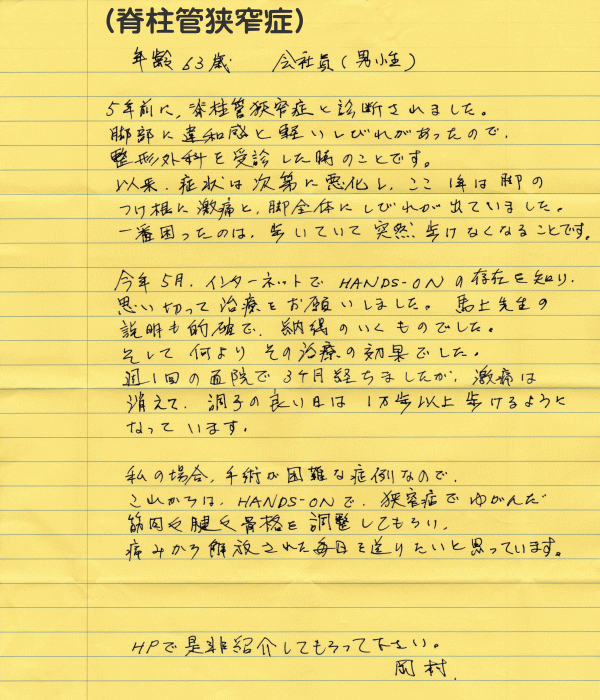 (脊柱管狭窄症)
年齢63歳 会社員(男性)
5年前に、脊柱管狭窄症と診断されました。
脚部に違和感と軽いしびれがあったので、
整形外科を受診した時のことです。
以来、症状は次第に悪化し、ここ1年は脚の
つけ根に激痛と、脚全体にしびれが出ていました。
一番困ったのは、歩いていて突然歩けなくなることです。
今年5月、インターネットでHANDS-ONの存在を知り、
思い切って治療をお願いしました。馬上先生の
説明も的確で、納得のいくものでした。
そして何よりその治療の効果でした。
週1回の通院で3ケ月経ちましたが、激痛は
消えて、調子の良い日は1万歩以上歩けるように
なっています。
私の場合、手術が困難な症例なので、
これからは、HANDS-ONで、狭窄症でゆがんだ
筋肉や腱や骨格を調整してもらい、
痛みから解放された毎日を送りたいと思っています。
HPで是非紹介してもらって下さい。
岡村